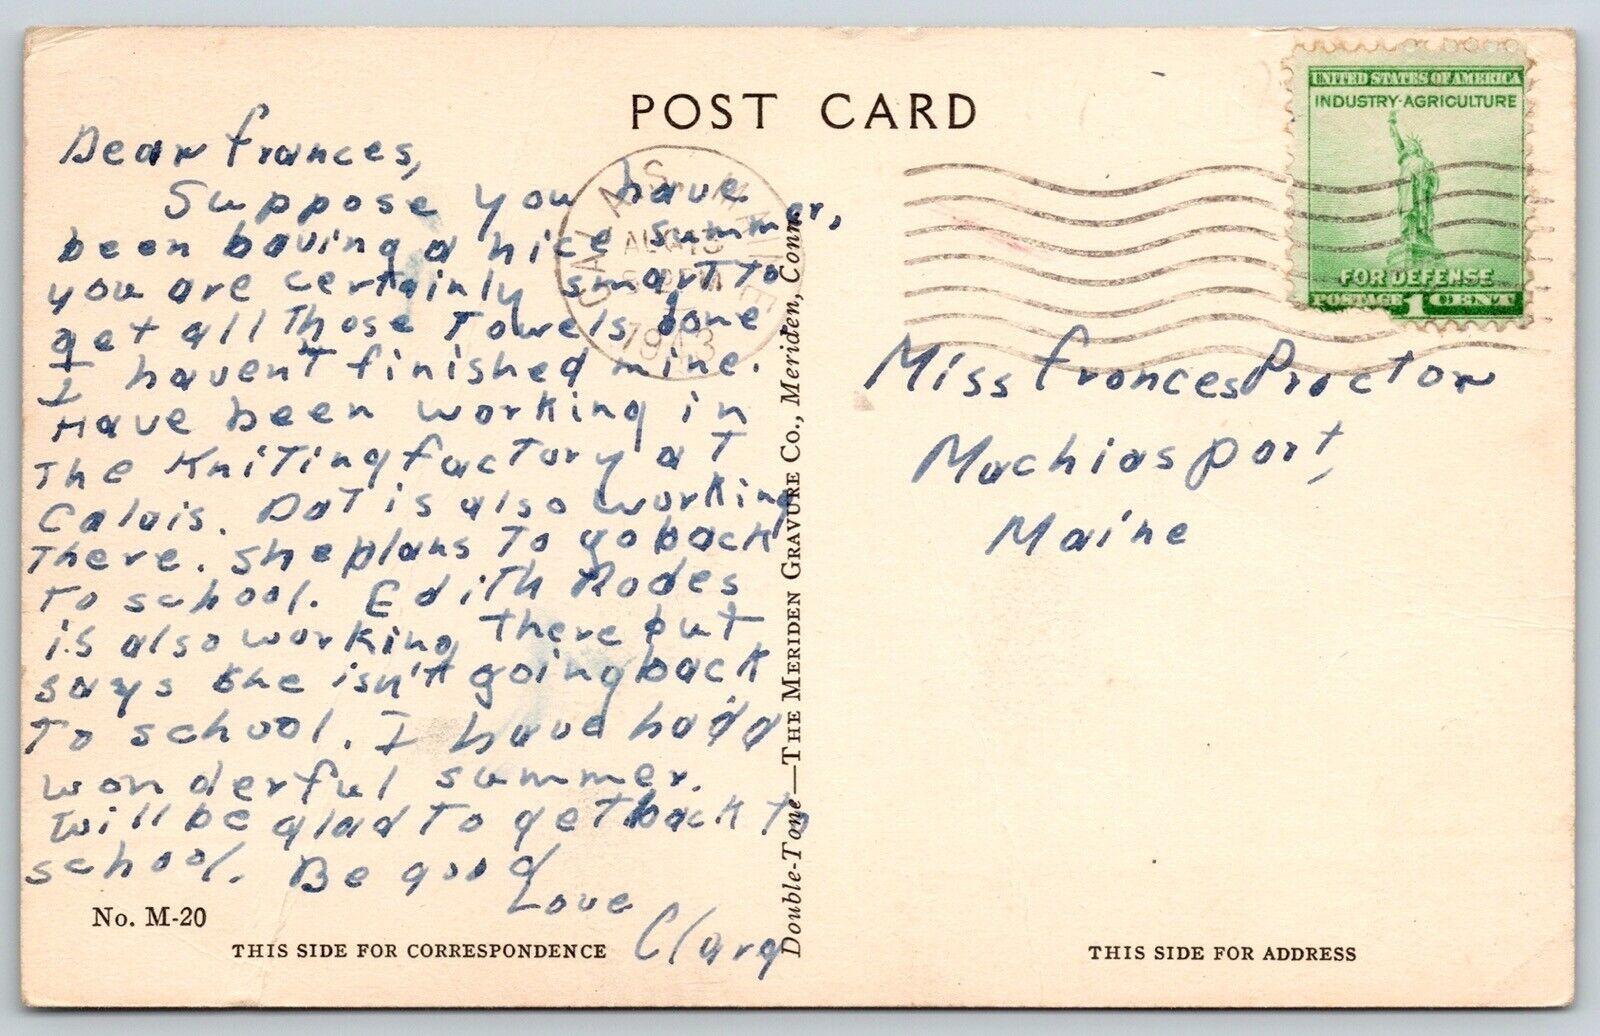 POST CARD
UNITED STATES OF AMERICA
INDUSTRY-AGRICULTURE
FOR DEFENSE
POSTAGE 1 CENT
AUG
1943
Dear Frances,
Suppose you have
been having a nice summer,
you are certainly smart to
get all Those Towels done
I haven't finished mine.
Have been working in
The Kniting factory aT
Calais. Dot is also working
There. she plans To go back
To school. Edith Rodes
is also working There but
says she isn't going back
To school. I have had a
wonderful summer.
Will be glad To get back to
school. Be good
Love
Clara
Miss Frances Proctor
Machiasport,
Maine
Double-Tone—THE MERIDEN GRAVURE CO., Meriden, Conn.
No. M-20
THIS SIDE FOR CORRESPONDENCE
THIS SIDE FOR ADDRESS